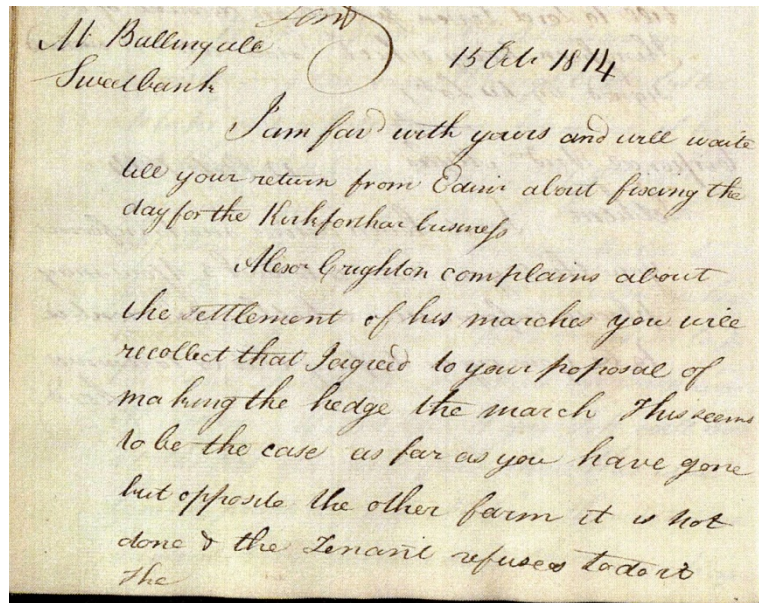 Mr Ballingale
Sweetbank
15 Oct 1814
I am favd with yours and will waite
till your return from Edinr about fixing the
day for the Kirkforthar business
Alexr Crighton complains about
the settlement of his marches you will
recollect that I agreed to your poposal of
making the hedge the march This seems
to be the case as far as you have gone
but opposite the other farm it is not
done & the Tenant refuses to do it
The